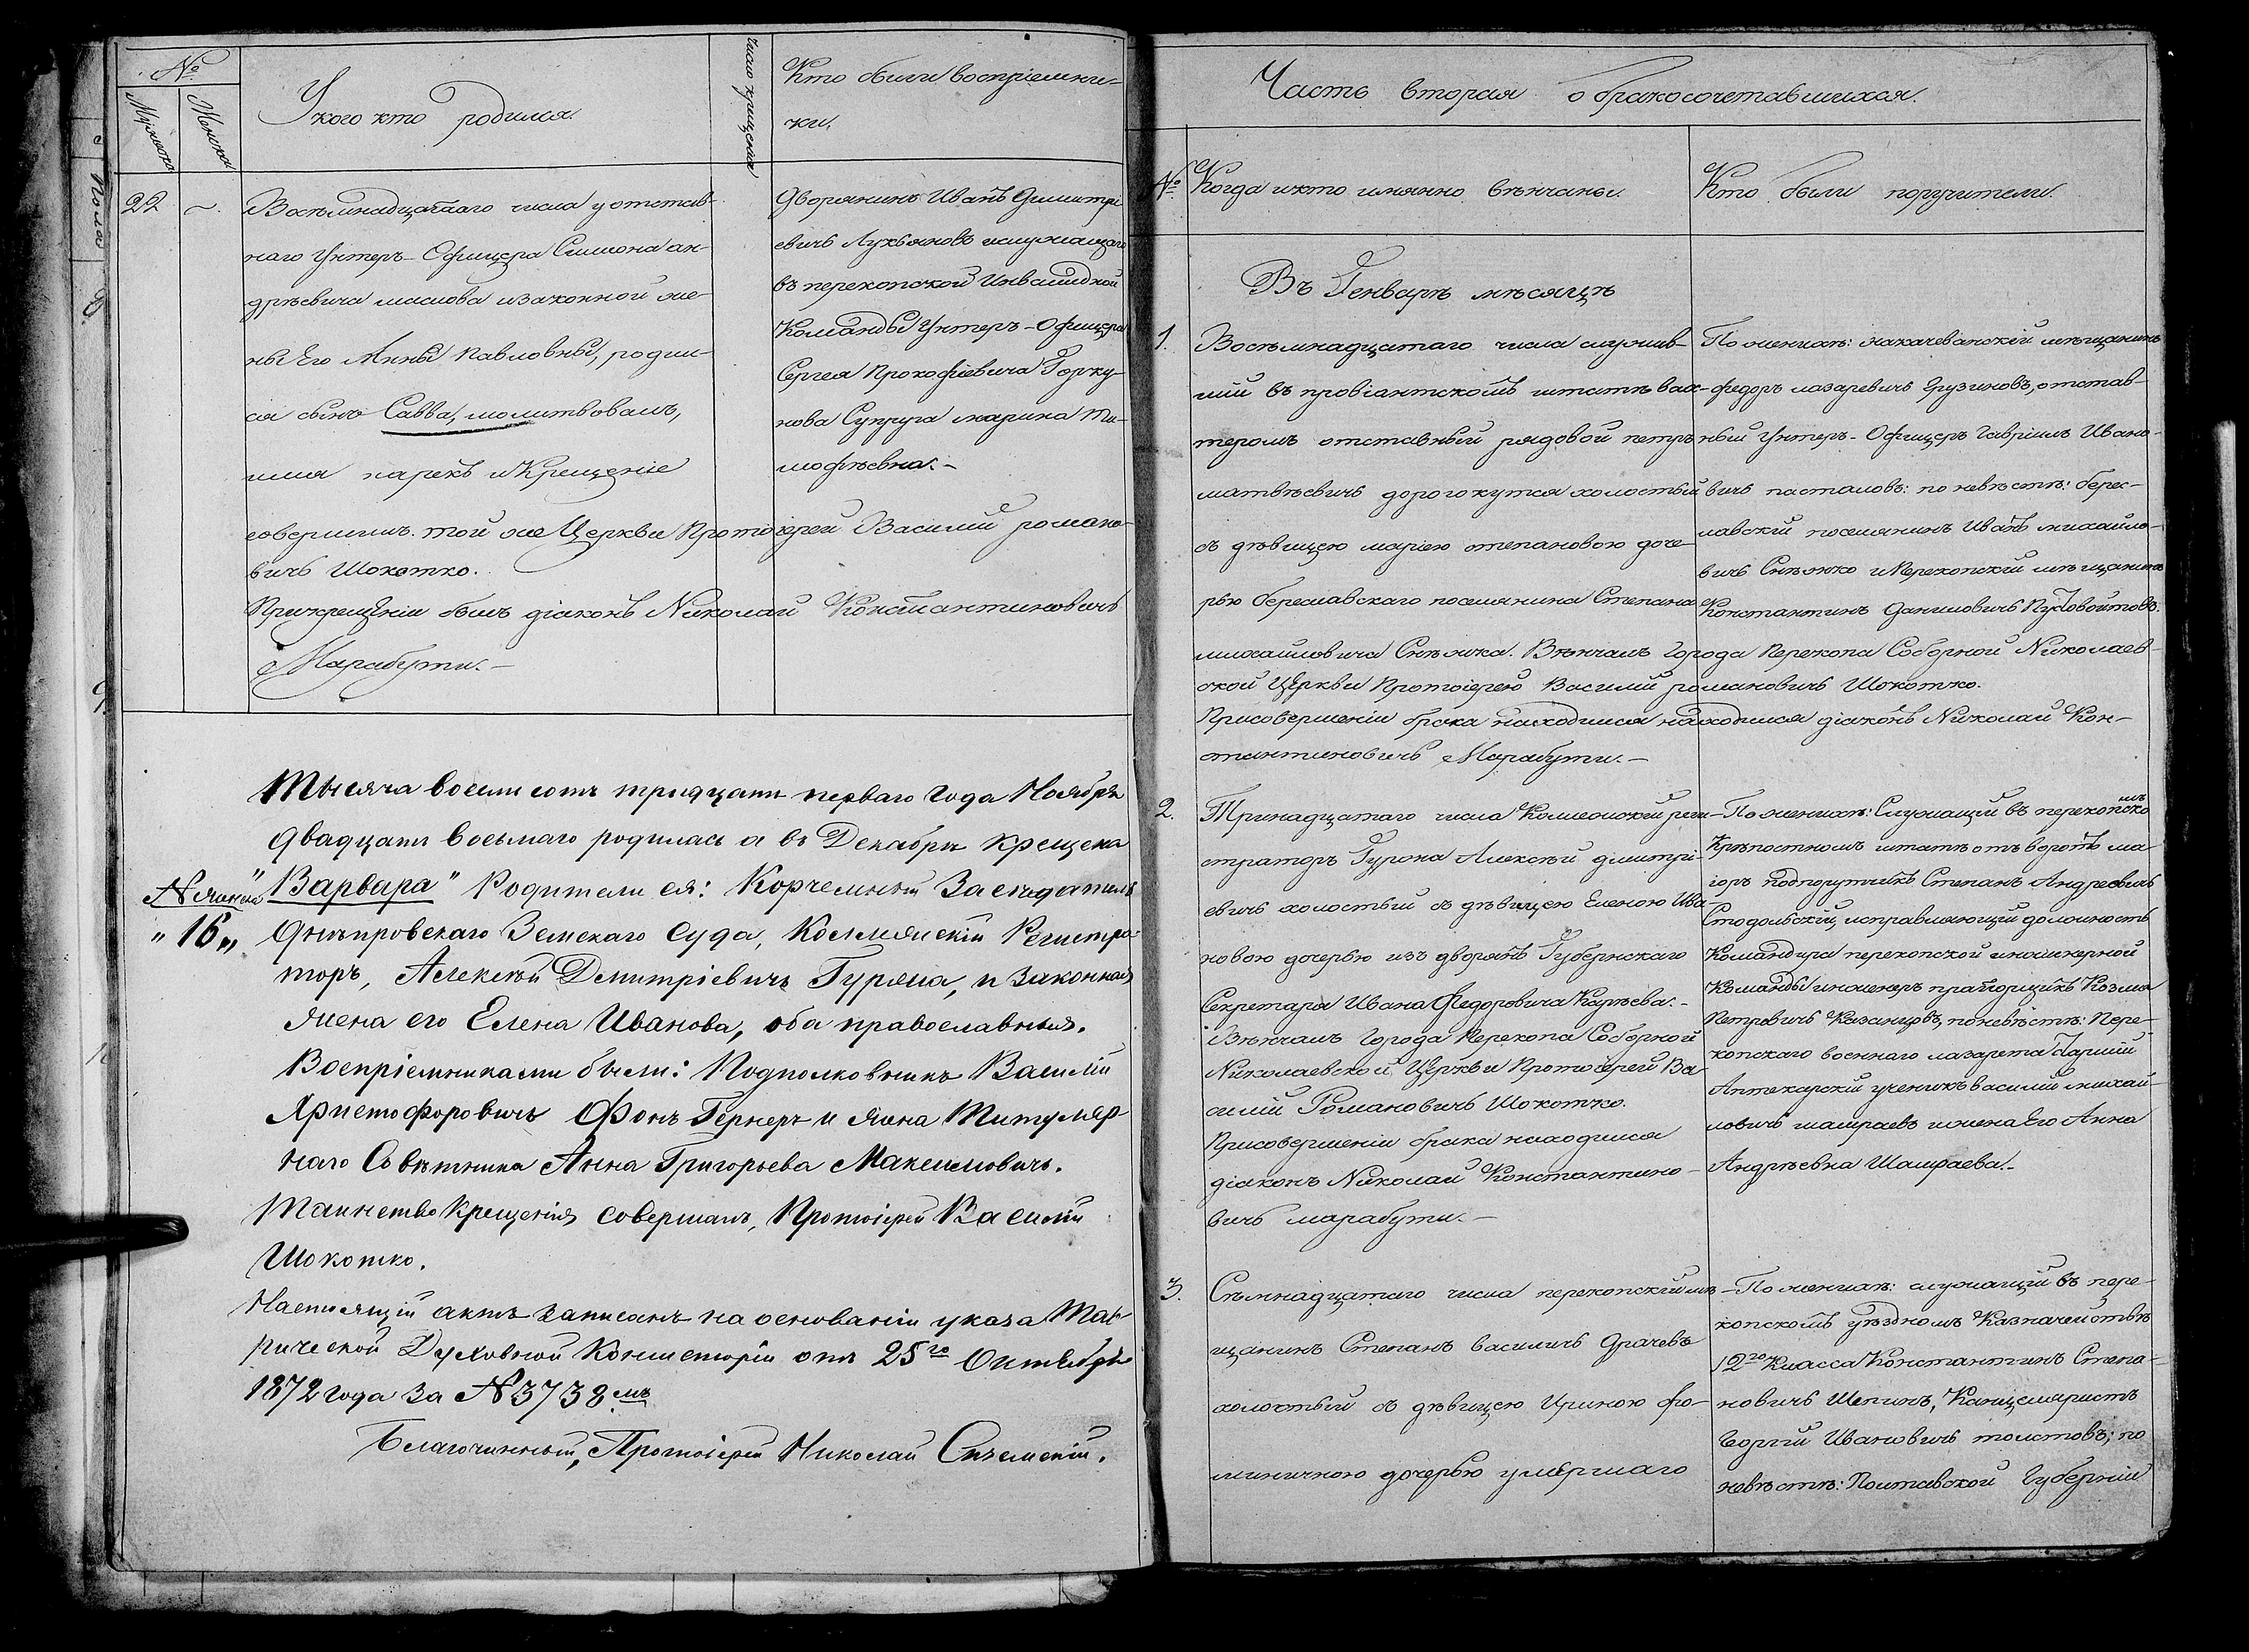 №
Мужеска
Женска
У кого кто родился.
число крещения
Кто были воспріемни-
ки.
22
Восемнадцатаго числа у отстав-
наго Унтеръ-Офицера Симиона ан-
дрѣевича маслова и законной же-
ны Его Анны Павловны, родил-
ся сынъ Савва, молитвовалъ,
имя нарекъ и Крещеніе
совершилъ той же Церкви Протоіерей Василий романо-
вичъ Шокотко.
При крещеніи былъ діаконъ Николай Константиновичъ
Марабути.-
Дворянинъ Иванъ Димитрі
евичъ Лукьяновъ и служащаго
въ перекопской Инвалидной
Команды Унтеръ-Офицера
Сергея Прокофіевича Горку-
нова Супруга марина Ти-
мофѣевна.-
Тысяча восемь сотъ тридцать перваго года Ноября
двадцать восьмаго родилась а въ Декабрѣ крещена
N женска
"16"
"Варвара" Родители ея: Корчемный Засѣдатель
Днѣпровскаго Земскаго Суда, Коллежскій Регистра-
торъ, Алексѣй Дмитріевичъ Гуржа, и законная
жена его Елена Иванова, оба православныя.
Воспріемниками были: Подполковникъ Василій
Христофоровичъ Фонъ Гернеръ и жена Титуляр
наго Совѣтника Анна Григорьева Максимовичъ.
Таинство Крещенія совершалъ, Протоіерей Василій
Шокотко.
Настоящій актъ записанъ на основаніи указа Тав-
рической Духовной Консисторіи отъ 25го Октября
1872 года за N 3738.мъ
Благочинный, Протоіерей Николай Снѣжескій.
Часть вторая о бракосочетавшихся.
№
Когда и кто имянно вѣнчаны.
Кто были поручители.
Въ Генварѣ мѣсяцѣ
1.
Восемнадцатаго числа служив-
шій въ провіантскомъ штатѣ вах-
теромъ отставный рядовой петръ
матвѣевичъ дорогокутся холостый
съ дѣвицею маріею степановою доче-
рью бериславскаго поселянина Степана
михаиловича Снѣжка. Вѣнчалъ Города Перекопа Соборной Николаев-
ской Церкви Протоіерей Василий романовичъ Шокотко.
При совершеніи брака находился находился діаконъ Николай Кон-
стантиновичъ Марабути.-
По женихѣ: накачеванскій мѣщанинъ
федоръ лазаревичъ Грузиновъ, отстав-
ный Унтеръ-Офицеръ Гавріилъ Ивано-
вичъ пасталовъ: по невѣстѣ: берис-
лавскій поселянинъ Иванъ михайло-
вичъ Снѣжко и Перекопскій мѣщанинъ
Константинъ Даниловичъ Пудовойтовъ.
2.
Тринадцатаго числа Коллежскій реги-
страторъ Гуржа Алексѣй димитрі-
евичъ холостый съ дѣвицею Еленою Ива-
новою дочерью изъ дворянъ Губернскаго
Секретаря Ивана Федоровича Карѣева.-
Вѣнчалъ Города Перекопа Соборной
Николаевской Церкви Протоіерей Ва
силій Романовичъ Шокотко.
При совершеніи брака находился
діаконъ Николай Константино-
вичъ марабути.-
По женихѣ: Служащій въ перекопскомъ
Крѣпостномъ штатѣ отъ воротъ ма-
іоръ подпоручикъ Степанъ Андреевичъ
Стодольскій, исправляющій должность
Командира перекопской инженерной
Команды инженеръ прапорщикъ Козма
Петровичъ Казанцовъ, по невѣстѣ: Пере-
копскаго военнаго лазарета старшій
Аптекарскій ученикъ василий михай-
ловичъ шамраевъ и жена Его Анна
Андрѣевна Шамраева.-
3.
Семнадцатаго числа перекопскій мѣ-
щанинъ Степанъ василичъ Драчевъ
холостый съ дѣвицею Ириною фо-
миничною дочерью умершаго
По женихѣ: служащій въ пере-
копскомъ уѣздномъ Казначействѣ
12го Класса Константинъ Степа-
новичъ Шепинъ, Канцеляристъ
Георгій Ивановичъ толстовъ; по
невѣстѣ: Полтавской Губерніи